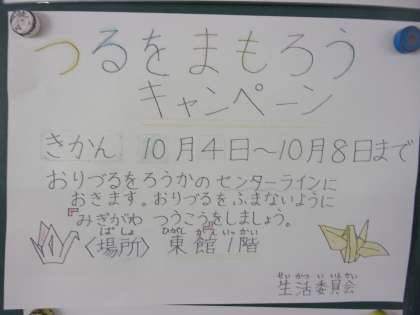 つるをまもろう
キャンペーン
きかん 10月4日〜10月8日まで
おりづるをろうかのセンターラインに
おきます。おりづるをふまないように
『みぎがわつうこう』をしましょう。
〈場所〉 東館1階
ばしょ ひがしかんいっかい
せいかついいんかい
生活委員会